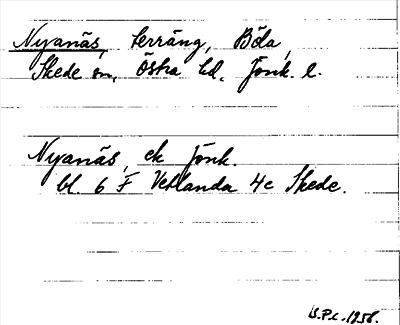 Nyanäs, terräng, Böda,
Skede sn, Östra hd, Jönk. l.
Nyanäs, ek Jönk.
bl. 6 F Vetlanda 4c Skede.
1958.